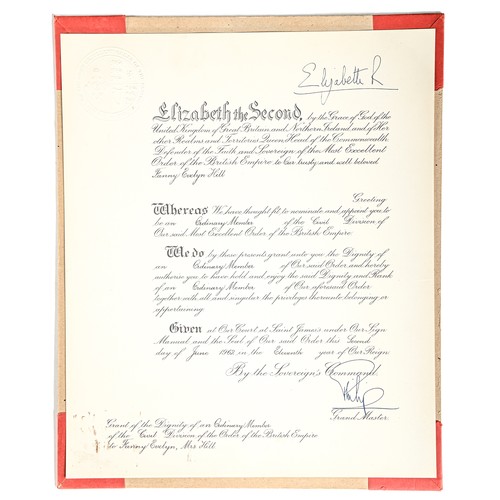 Elizabeth R
Elizabeth the Second, by the Grace of God of the
United Kingdom of Great Britain and Northern Ireland and of Her
other Realms and Territories Queen, Head of the Commonwealth,
Defender of the Faith and Sovereign of the Most Excellent
Order of the British Empire to Our trusty and well beloved
Fanny Evelyn Hill
Greeting
Whereas We have thought fit to nominate and appoint you to
be an Ordinary Member of the Civil Division of
Our said Most Excellent Order of the British Empire
We do by these presents grant unto you the Dignity of
an Ordinary Member of Our said Order and hereby
authorise you to have hold and enjoy the said Dignity and Rank
of an Ordinary Member of Our aforesaid Order
together with all and singular the privileges thereunto belonging or
appertaining.
Given at Our Court at Saint James's under Our Sign
Manual and the Seal of Our said Order this Second
day of June 1962 in the Eleventh year of Our Reign
By the Sovereign's Command.
Philip
Grand Master.
Grant of the Dignity of an Ordinary Member
of the Civil Division of the Order of the British Empire
to Fanny Evelyn, Mrs Hill